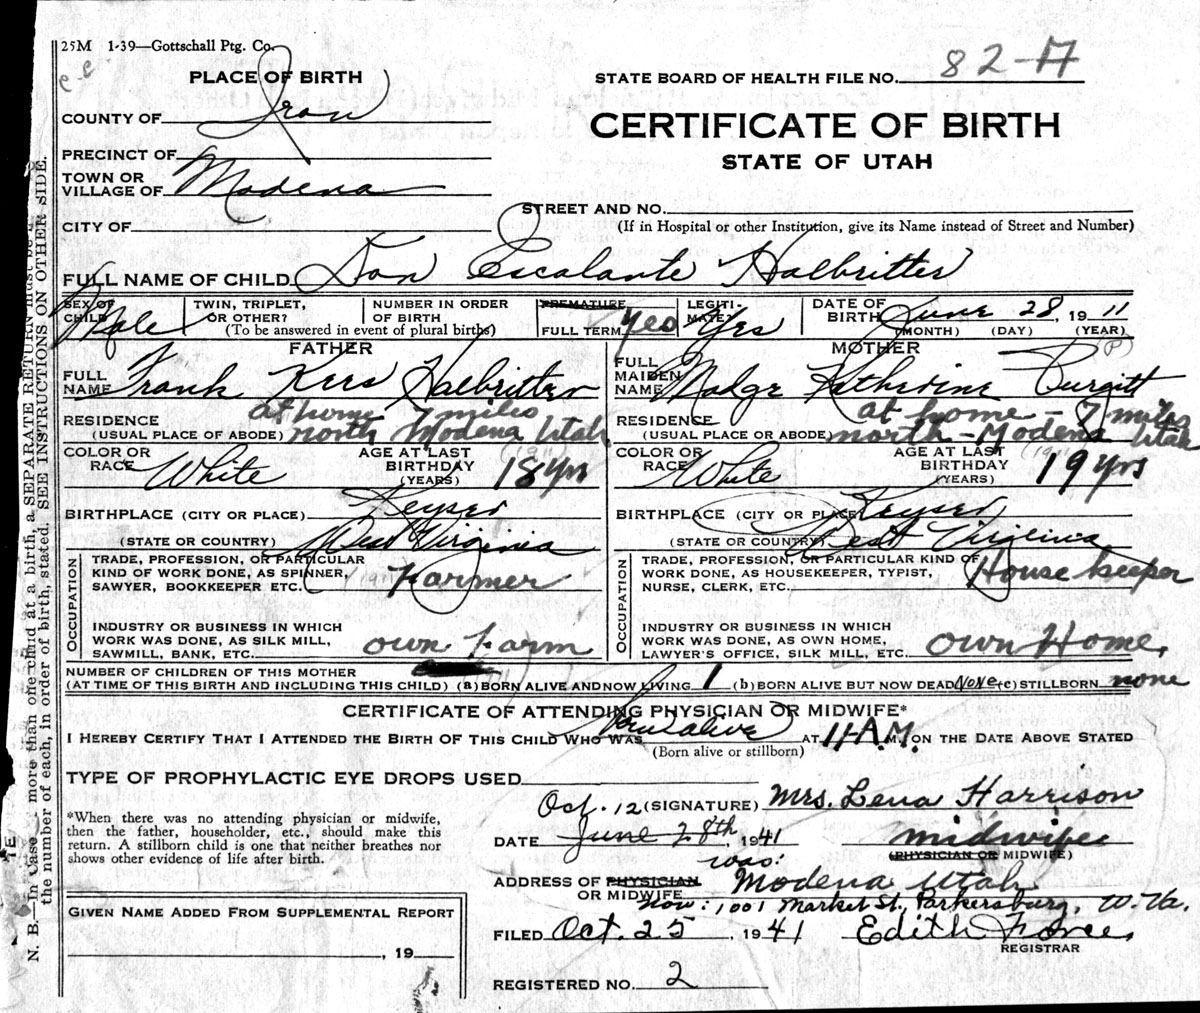 25M 1-39—Gottschall Ptg. Co.
PLACE OF BIRTH
STATE BOARD OF HEALTH FILE NO. 82-A
COUNTY OF Iron
CERTIFICATE OF BIRTH
STATE OF UTAH
PRECINCT OF
TOWN OR VILLAGE OF Modena
STREET AND NO.
(If in Hospital or other Institution, give its Name instead of Street and Number)
CITY OF
FULL NAME OF CHILD Don Escalante Halbritter
SEX OF CHILD Male TWIN, TRIPLET, OR OTHER? NUMBER IN ORDER OF BIRTH PREMATURE FULL TERM Yes LEGITIMATE? Yes DATE OF BIRTH June 28, 1911
(To be answered in event of plural births) (MONTH) (DAY) (YEAR)
FATHER
FULL NAME Frank Kees Halbritter
RESIDENCE at home 7 miles
(USUAL PLACE OF ABODE) north Modena Utah
COLOR OR RACE White AGE AT LAST BIRTHDAY (YEARS) (1911) 18 yrs
BIRTHPLACE (CITY OR PLACE) Keyser
(STATE OR COUNTRY) West Virginia
OCCUPATION
TRADE, PROFESSION, OR PARTICULAR
KIND OF WORK DONE, AS SPINNER,
SAWYER, BOOKKEEPER ETC. (1911) Farmer
INDUSTRY OR BUSINESS IN WHICH
WORK WAS DONE, AS SILK MILL,
SAWMILL, BANK, ETC. own Farm
MOTHER
(P)
FULL MAIDEN NAME Madge Katherine Purgitt
RESIDENCE at home - 7 miles
(USUAL PLACE OR ABODE) north - Modena Utah
COLOR OR RACE White AGE AT LAST BIRTHDAY (YEARS) (1911) 19 yrs
BIRTHPLACE (CITY OR PLACE) Keyser
(STATE OR COUNTRY) West Virginia
OCCUPATION
TRADE, PROFESSION, OR PARTICULAR KIND OF
WORK DONE, AS HOUSEKEEPER, TYPIST,
NURSE, CLERK, ETC. Housekeeper
INDUSTRY OR BUSINESS IN WHICH
WORK WAS DONE, AS OWN HOME,
LAWYER'S OFFICE, SILK MILL, ETC. own Home.
NUMBER OF CHILDREN OF THIS MOTHER
(AT TIME OF THIS BIRTH AND INCLUDING THIS CHILD) (a) BORN ALIVE AND NOW LIVING 1 (b) BORN ALIVE BUT NOW DEAD None (c) STILLBORN none
CERTIFICATE OF ATTENDING PHYSICIAN OR MIDWIFE*
I HEREBY CERTIFY THAT I ATTENDED THE BIRTH OF THIS CHILD WHO WAS Born alive AT 11-A.M. ON THE DATE ABOVE STATED
(Born alive or stillborn)
TYPE OF PROPHYLACTIC EYE DROPS USED
*When there was no attending physician or midwife,
then the father, householder, etc., should make this
return. A stillborn child is one that neither breathes nor
shows other evidence of life after birth.
Oct. 12 (SIGNATURE) Mrs. Lena Harrison
DATE June 28th, 1941 midwife
(PHYSICIAN OR MIDWIFE)
was:
ADDRESS OF PHYSICIAN OR MIDWIFE Modena Utah
Now: 1001 Market St, Parkersburg, W. Va.
GIVEN NAME ADDED FROM SUPPLEMENTAL REPORT
, 19
FILED Oct. 25, 1941 Edith
REGISTRAR
REGISTERED NO. 2
N. B.—In case more than one child at a birth, a SEPARATE RETURN must be
the number of each, in order of birth, stated. SEE INSTRUCTIONS ON OTHER SIDE.